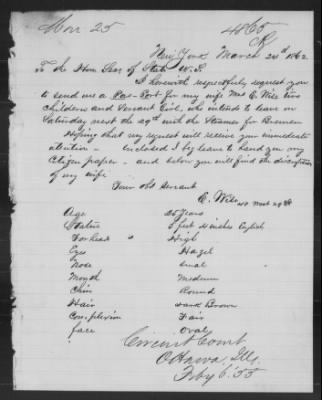 Mar 25
4865
New York March 24th 1862
To the Hon Sec of State U.S.
I herewith respectfully request you
to send me a Pas-Port for my wife Mrs C. Wile two
children and Servant Girl, who intends to leave on
Saturday next the 29th with the Steamer for Bremen
Hoping that my request will receive your immediate
attention - inclosed I by leave to hand you my
Citizen paper - and below you will find the discription
of my wife
Your obt Servant
C. Wile West 29 St
Age 25 Years
Statur 5 feet inches English
Forhead " High
Eyes Hazel
Nose Small
Mouth Medium
Chin Round
Hair dark Brown
Complexion Fair
face Oval
Circuit Court
Ottawa, Ills.
Feby 6. '55